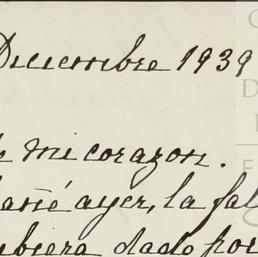 Diciembre 1939
de mi corazon.
ayer, la fal
ubiera dado por